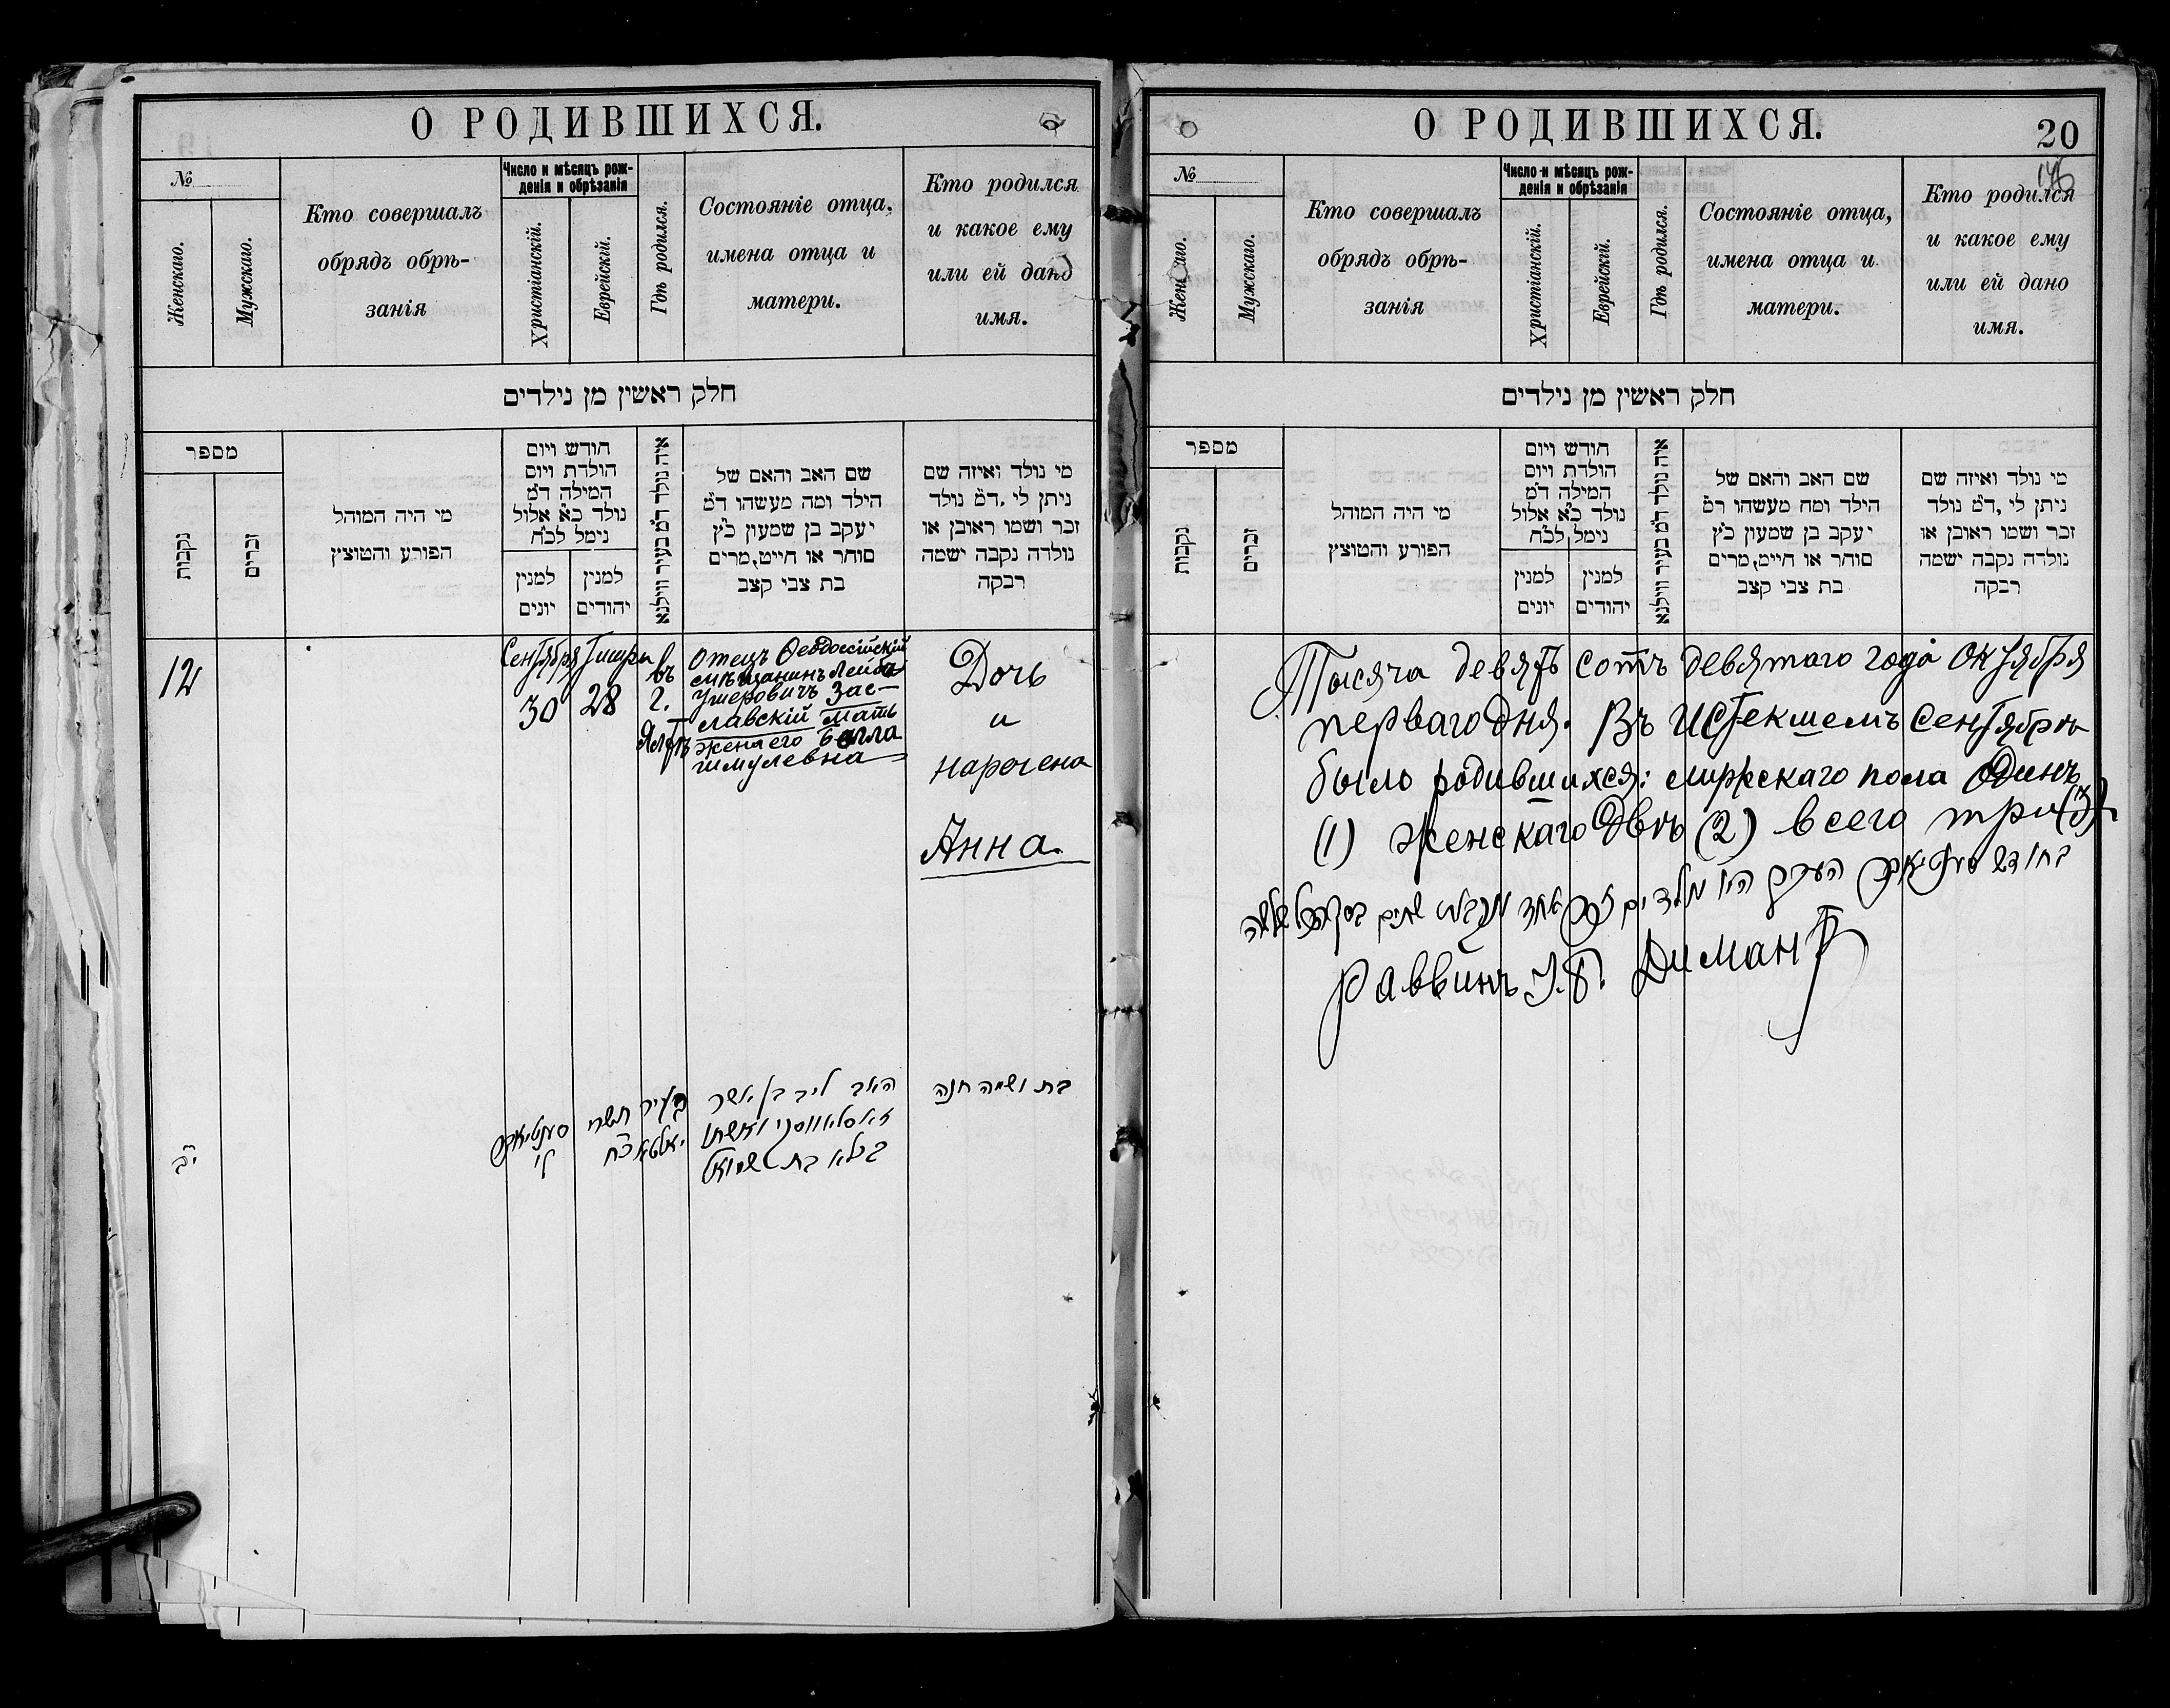 О РОДИВШИХСЯ.
№
Женскаго.
Мужскаго.
Кто совершалъ
обрядъ обрѣ-
занія
Число и мѣсяцъ рож-
денія и обрѣзанія
Христіанскій.
Еврейскій.
Гдѣ родился.
Состояніе отца,
имена отца и
матери.
Кто родился
и какое ему
или ей дано
имя.
חלק ראשין מן נילדים
מספר
נקבות
זכרים
מי היה המוהל
הפורע והמוצץ
חודש ויום
הולדת ויום
המילה ד״מ
נולד כ״א אלול
נימל לכ״ח
למנין
יונים
למנין
יהודים
איה נולד ד״מ בעיר ווילנא
שם האב והאם של
הילד ומה מעשהו ד״מ
יעקב בן שמעון כ״ץ
סוחר או חייט, מרים
בת צבי קצב
מי נולד ואיזה שם
ניתן לי, ד״מ נולד
זכר ושמו ראובן או
נולדה נקבה ישמה
רבקה
12
Сентября
30
Тишри
28
въ
г.
Ялтѣ
Отецъ Ѳеодосійскій
мѣщанинъ Лейба
Ушеровичъ Зас-
лавскій Мать
жена его Бейла
Шмулевна
Дочь
и
наречена
Анна.
י״ב
סענטיאבר
ל׳
תשרי
כ״ח
בעיר
יאלטא
האב ליב בן אשר
זאסלאווסקי ואשתו
בילא בת שמואל
בת ושמה חנה
О РОДИВШИХСЯ.
20
146
№
Женскаго.
Мужскаго.
Кто совершалъ
обрядъ обрѣ-
занія
Число и мѣсяцъ рож-
денія и обрѣзанія
Христіанскій.
Еврейскій.
Гдѣ родился.
Состояніе отца,
имена отца и
матери.
Кто родился
и какое ему
или ей дано
имя.
חלק ראשין מן נילדים
מספר
נקבות
זכרים
מי היה המוהל
הפורע והמוצץ
חודש ויום
הולדת ויום
המילה ד״מ
נולד כ״א אלול
נימל לכ״ח
למנין
יונים
למנין
יהודים
איה נולד ד״מ בעיר ווילנא
שם האב והאם של
הילד ומה מעשהו ד״מ
יעקב בן שמעון כ״ץ
סוחר או חייט, מרים
בת צבי קצב
מי נולד ואיזה שם
ניתן לי, ד״מ נולד
זכר ושמו ראובן או
נולדה נקבה ישמה
רבקה
Тысяча девятьсотъ девятаго года октября
перваго дня. Въ истекшемъ Сентябрѣ
было родившихся: мужскаго пола Одинъ
(1) женскаго Двѣ (2) всего три (3)
בחודש סענטיאבר העבר היו נולדים זכר אחד נקבות שתים בסך הכל שלשה
Раввинъ І. Б. Димантъ